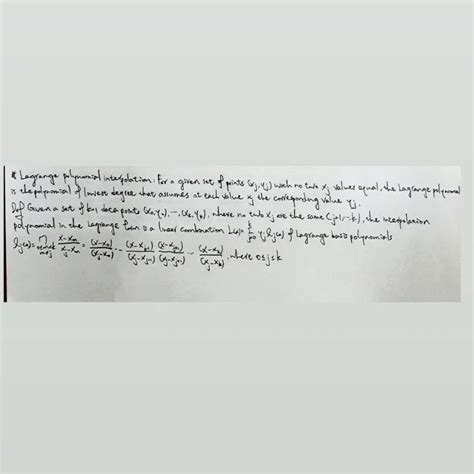 * Lagrange polynomial interpolation: For a given set of points (xj, yj) with no two xj values equal, the Lagrange polynomial
is the polynomial of lowest degree that assumes at each value xj the corresponding value yj.
Def Given a set of k+1 data points (x0, y0), ..., (xk, yk), where no two xj are the same (j=1,...k), the interpolation
polynomial in the Lagrange form is a linear combination L(x) = Σ_{j=0}^{k} yj lj(x) of Lagrange basis polynomials
lj(x) = Π_{0≤m≤k, m≠j} (x-xm)/(xj-xm) (x-x0)/(xj-x0) ... (x-xj-1)/(xj-xj-1) (x-xj+1)/(xj-xj+1) ... (x-xk)/(xj-xk), where 0≤j≤k